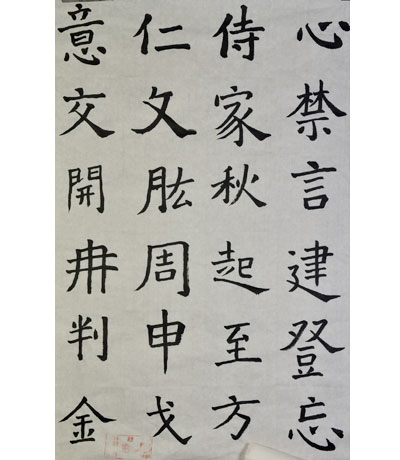 心禁言建登忘
侍家秋起至方
仁文肱周申戈
意交開冊判金